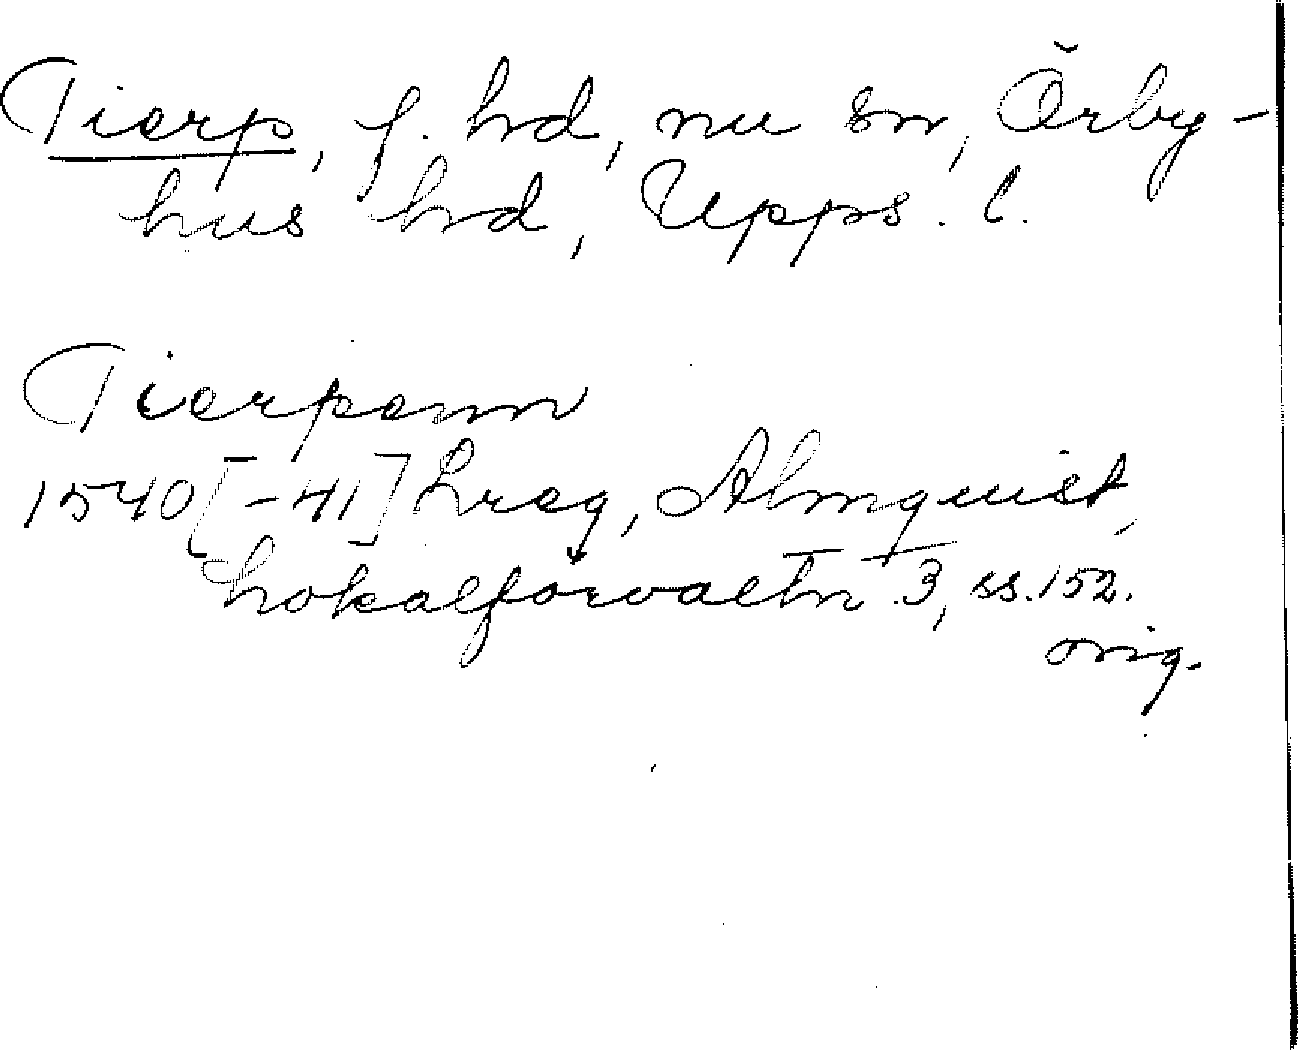 Tierp, f. hd, nu sn, Örby-
hus hd, Upps. l.
Tierpenn
1540[-41] Lreg, Almquist,
Lokalförvaltn. 3, ss. 152.
orig.